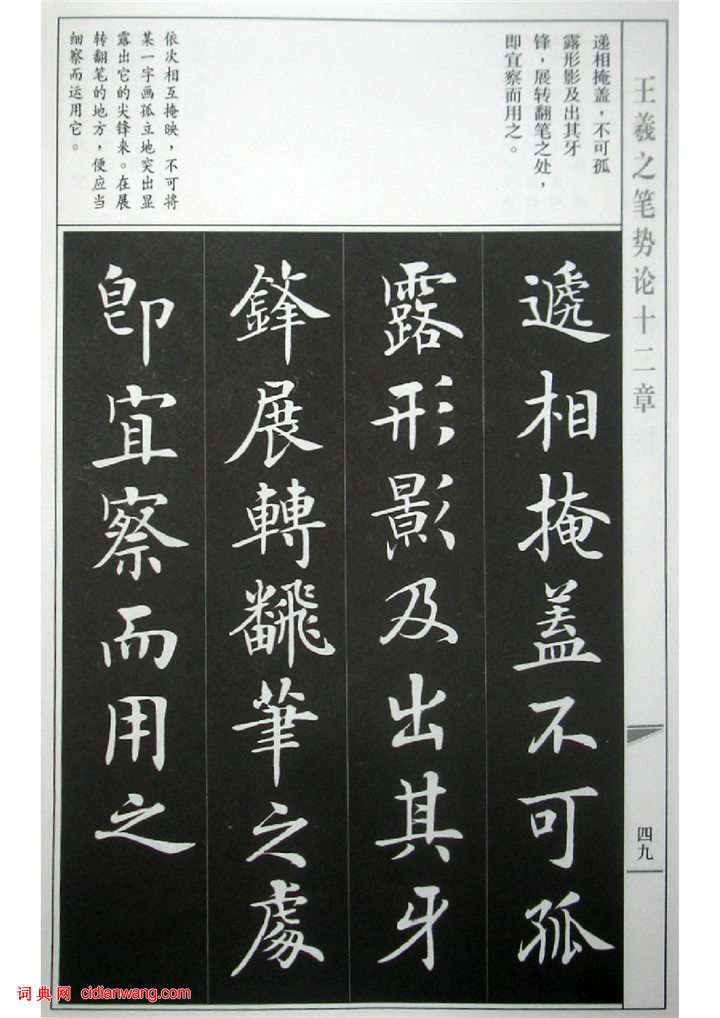 王羲之笔势论十二章
四九
递相掩盖，不可孤
露形影及出其牙
锋，展转翻笔之处，
即宜察而用之。
依次相互掩映，不可将
某一字画孤立地突出显
露出它的尖锋来。在展
转翻笔的地方，便应当
细察而运用它。
遞相掩盖不可孤
露形影及出其牙
鋒展轉飜筆之處
即宜察而用之
词典网 cidianwang.com